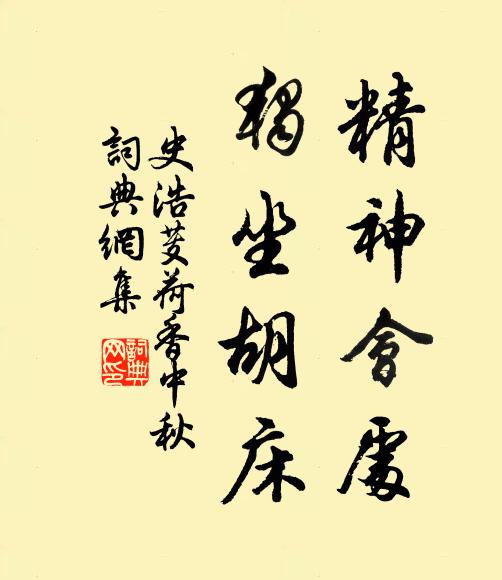 精神會處
獨坐胡床
史浩芰荷香中秋
詞典網集
詞典
网印